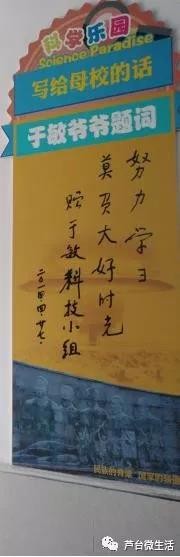 科学乐园
Science Paradise
写给母校的话
于敏爷爷题词
努力学习
莫负大好时光
赠于敏科技小组
二〇一四·四·廿七·
民族的脊梁 国家的
芦台微生活